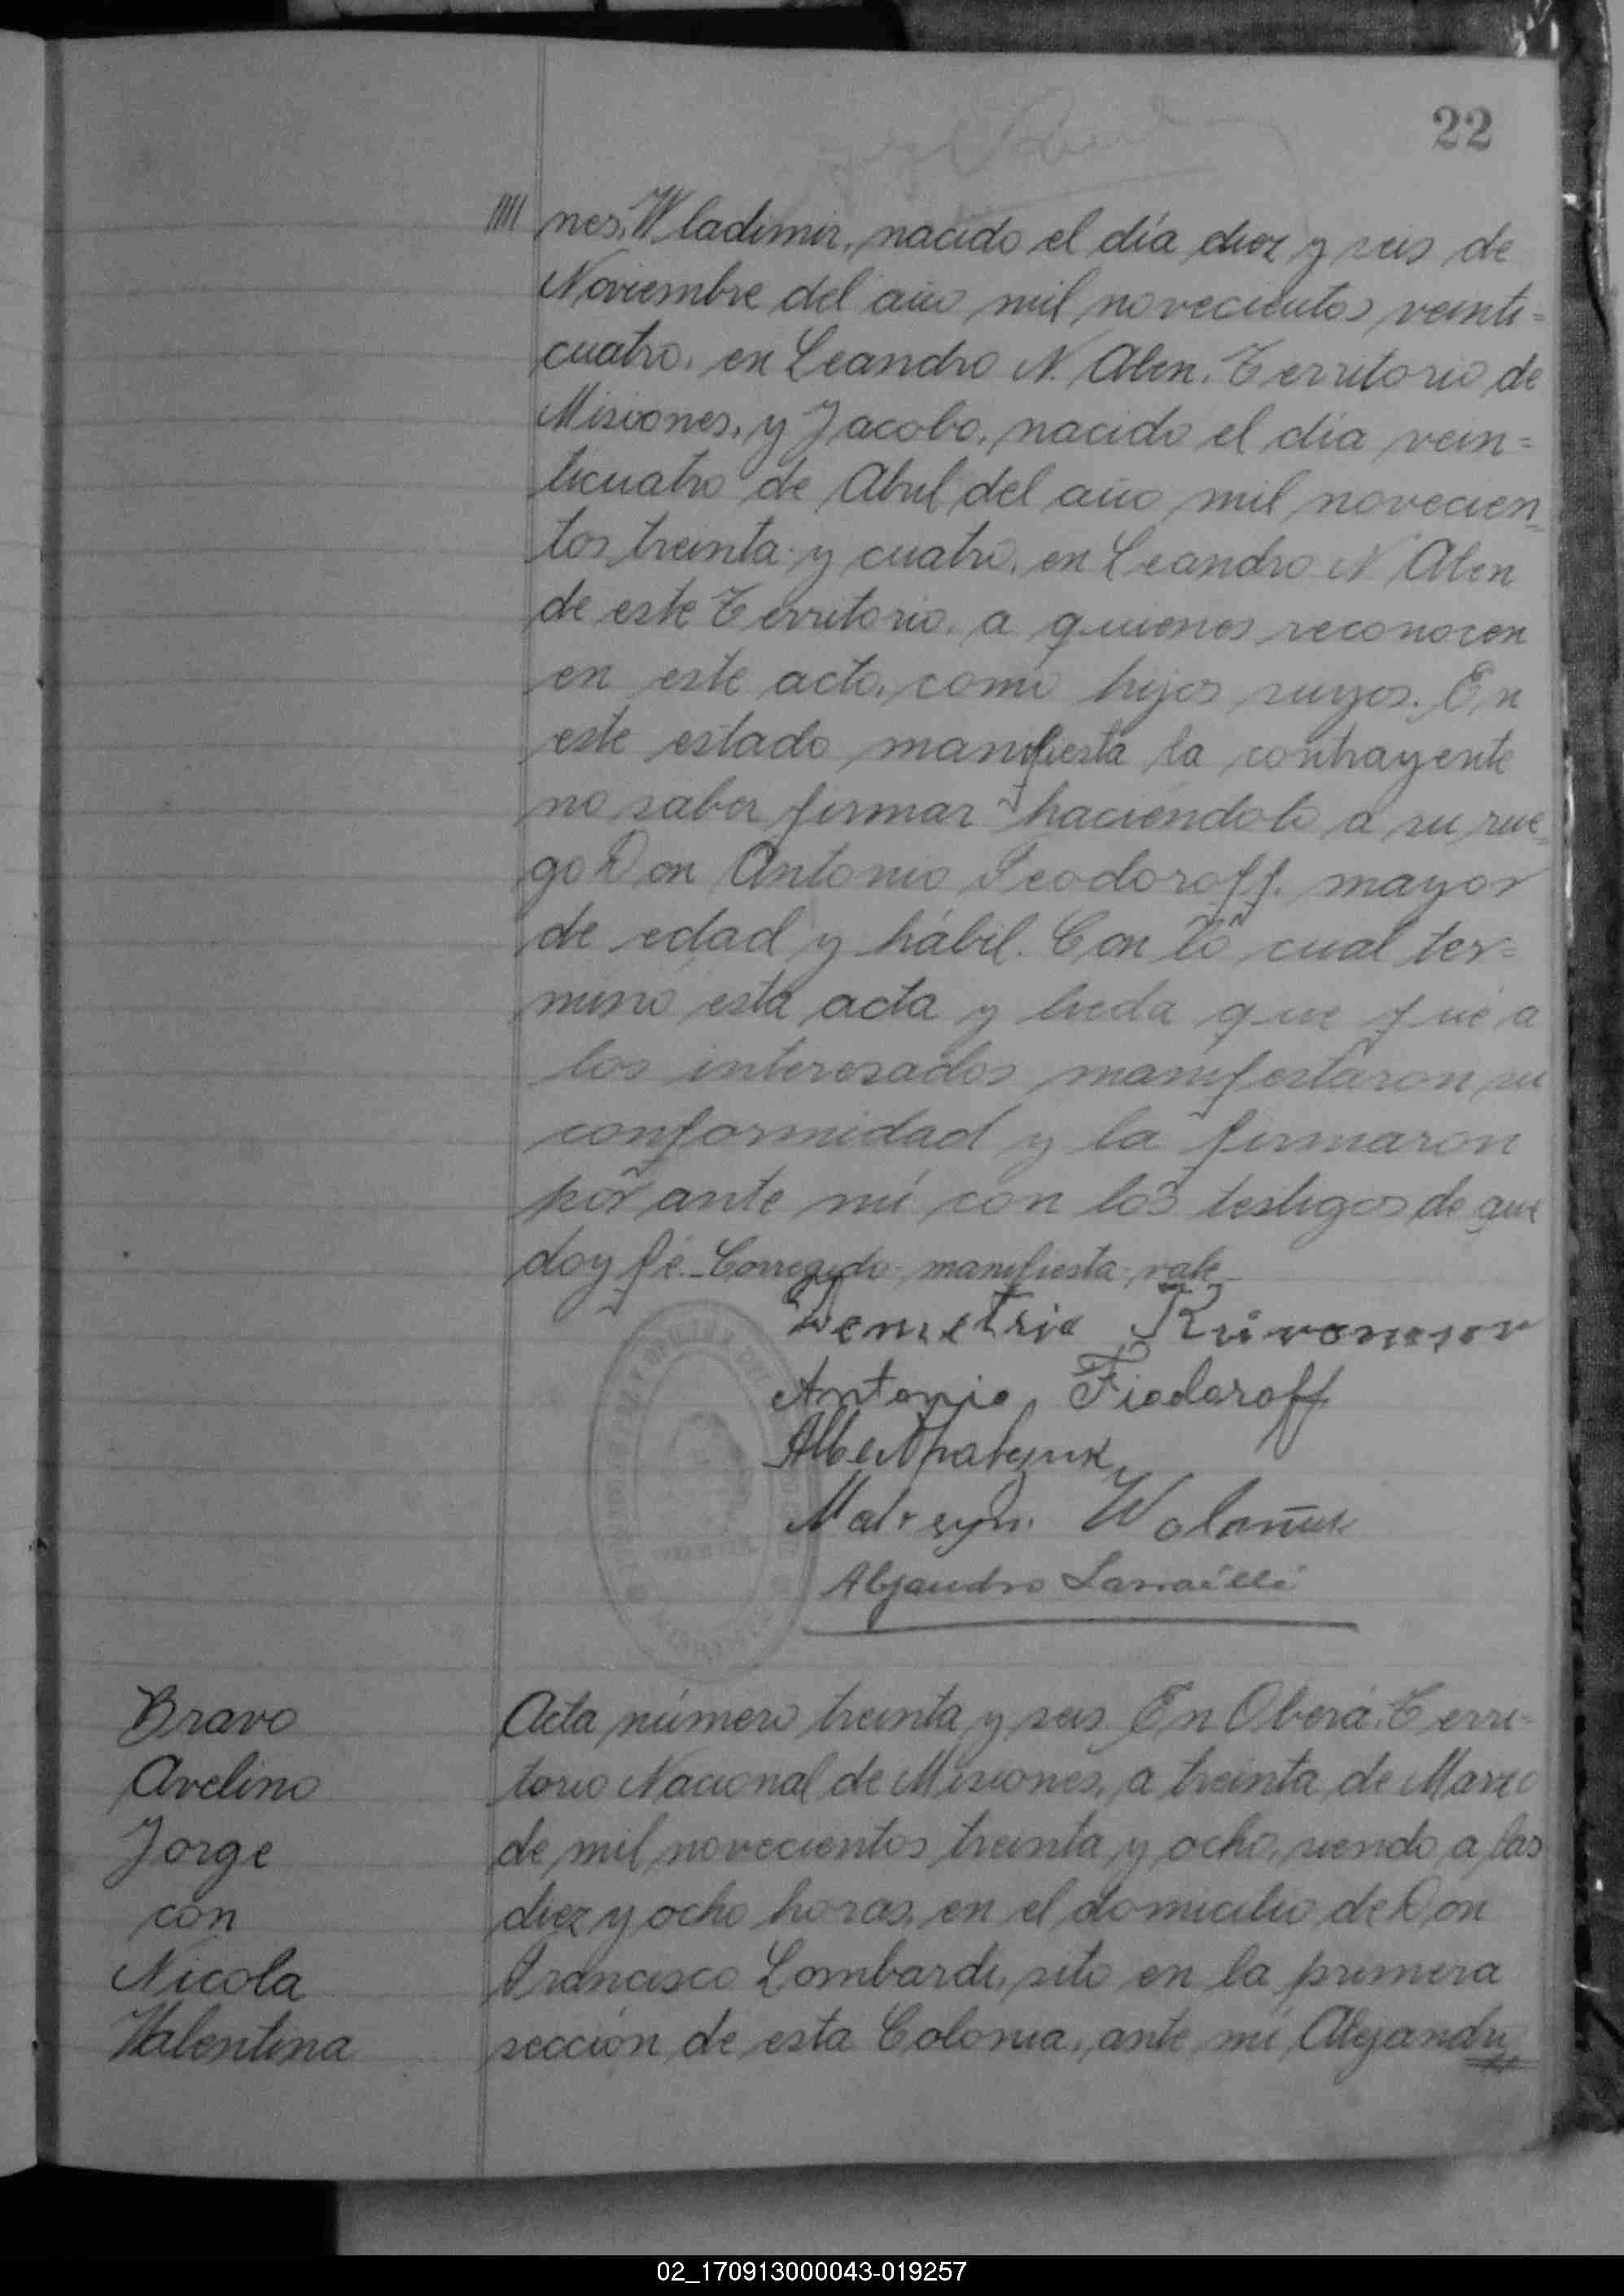 22
nes, Wladimir, nacido el día diez y seis de
Noviembre del año mil novecientos veinti=
cuatro, en Leandro N. Alen, Territorio de
Misiones, y Jacobo, nacido el día vein=
ticuatro de Abril del año mil novecien=
tos treinta y cuatro, en Leandro N Alen
de este Territorio, a quienes reconocen
en este acto, como hijos suyos. En
este estado manifiesta la contrayente
no saber firmar haciéndolo a su rue=
go Don Antonio Feodoroff, mayor
de edad y hábil. Con lo cual ter=
minó esta acta y leída que fué a
los interesados manifestaron su
conformidad y la firmaron
por ante mí con los testigos de que
doy fé.- Corregido- manifiesta- vale-
Demetrio
Antonio Fiodoroff
Wolañuk
Alejandro
Bravo
Avelino
Jorge
con
Nicola
Valentina
Acta número treinta y seis. En Oberá, Terri-
torio Nacional de Misiones, a treinta de Marzo
de mil novecientos treinta y ocho, siendo a las
diez y ocho horas, en el domicilio de Don
Francisco Lombardi, sito en la primera
sección de esta Colonia, ante mí Alejandro
02_170913000043-019257